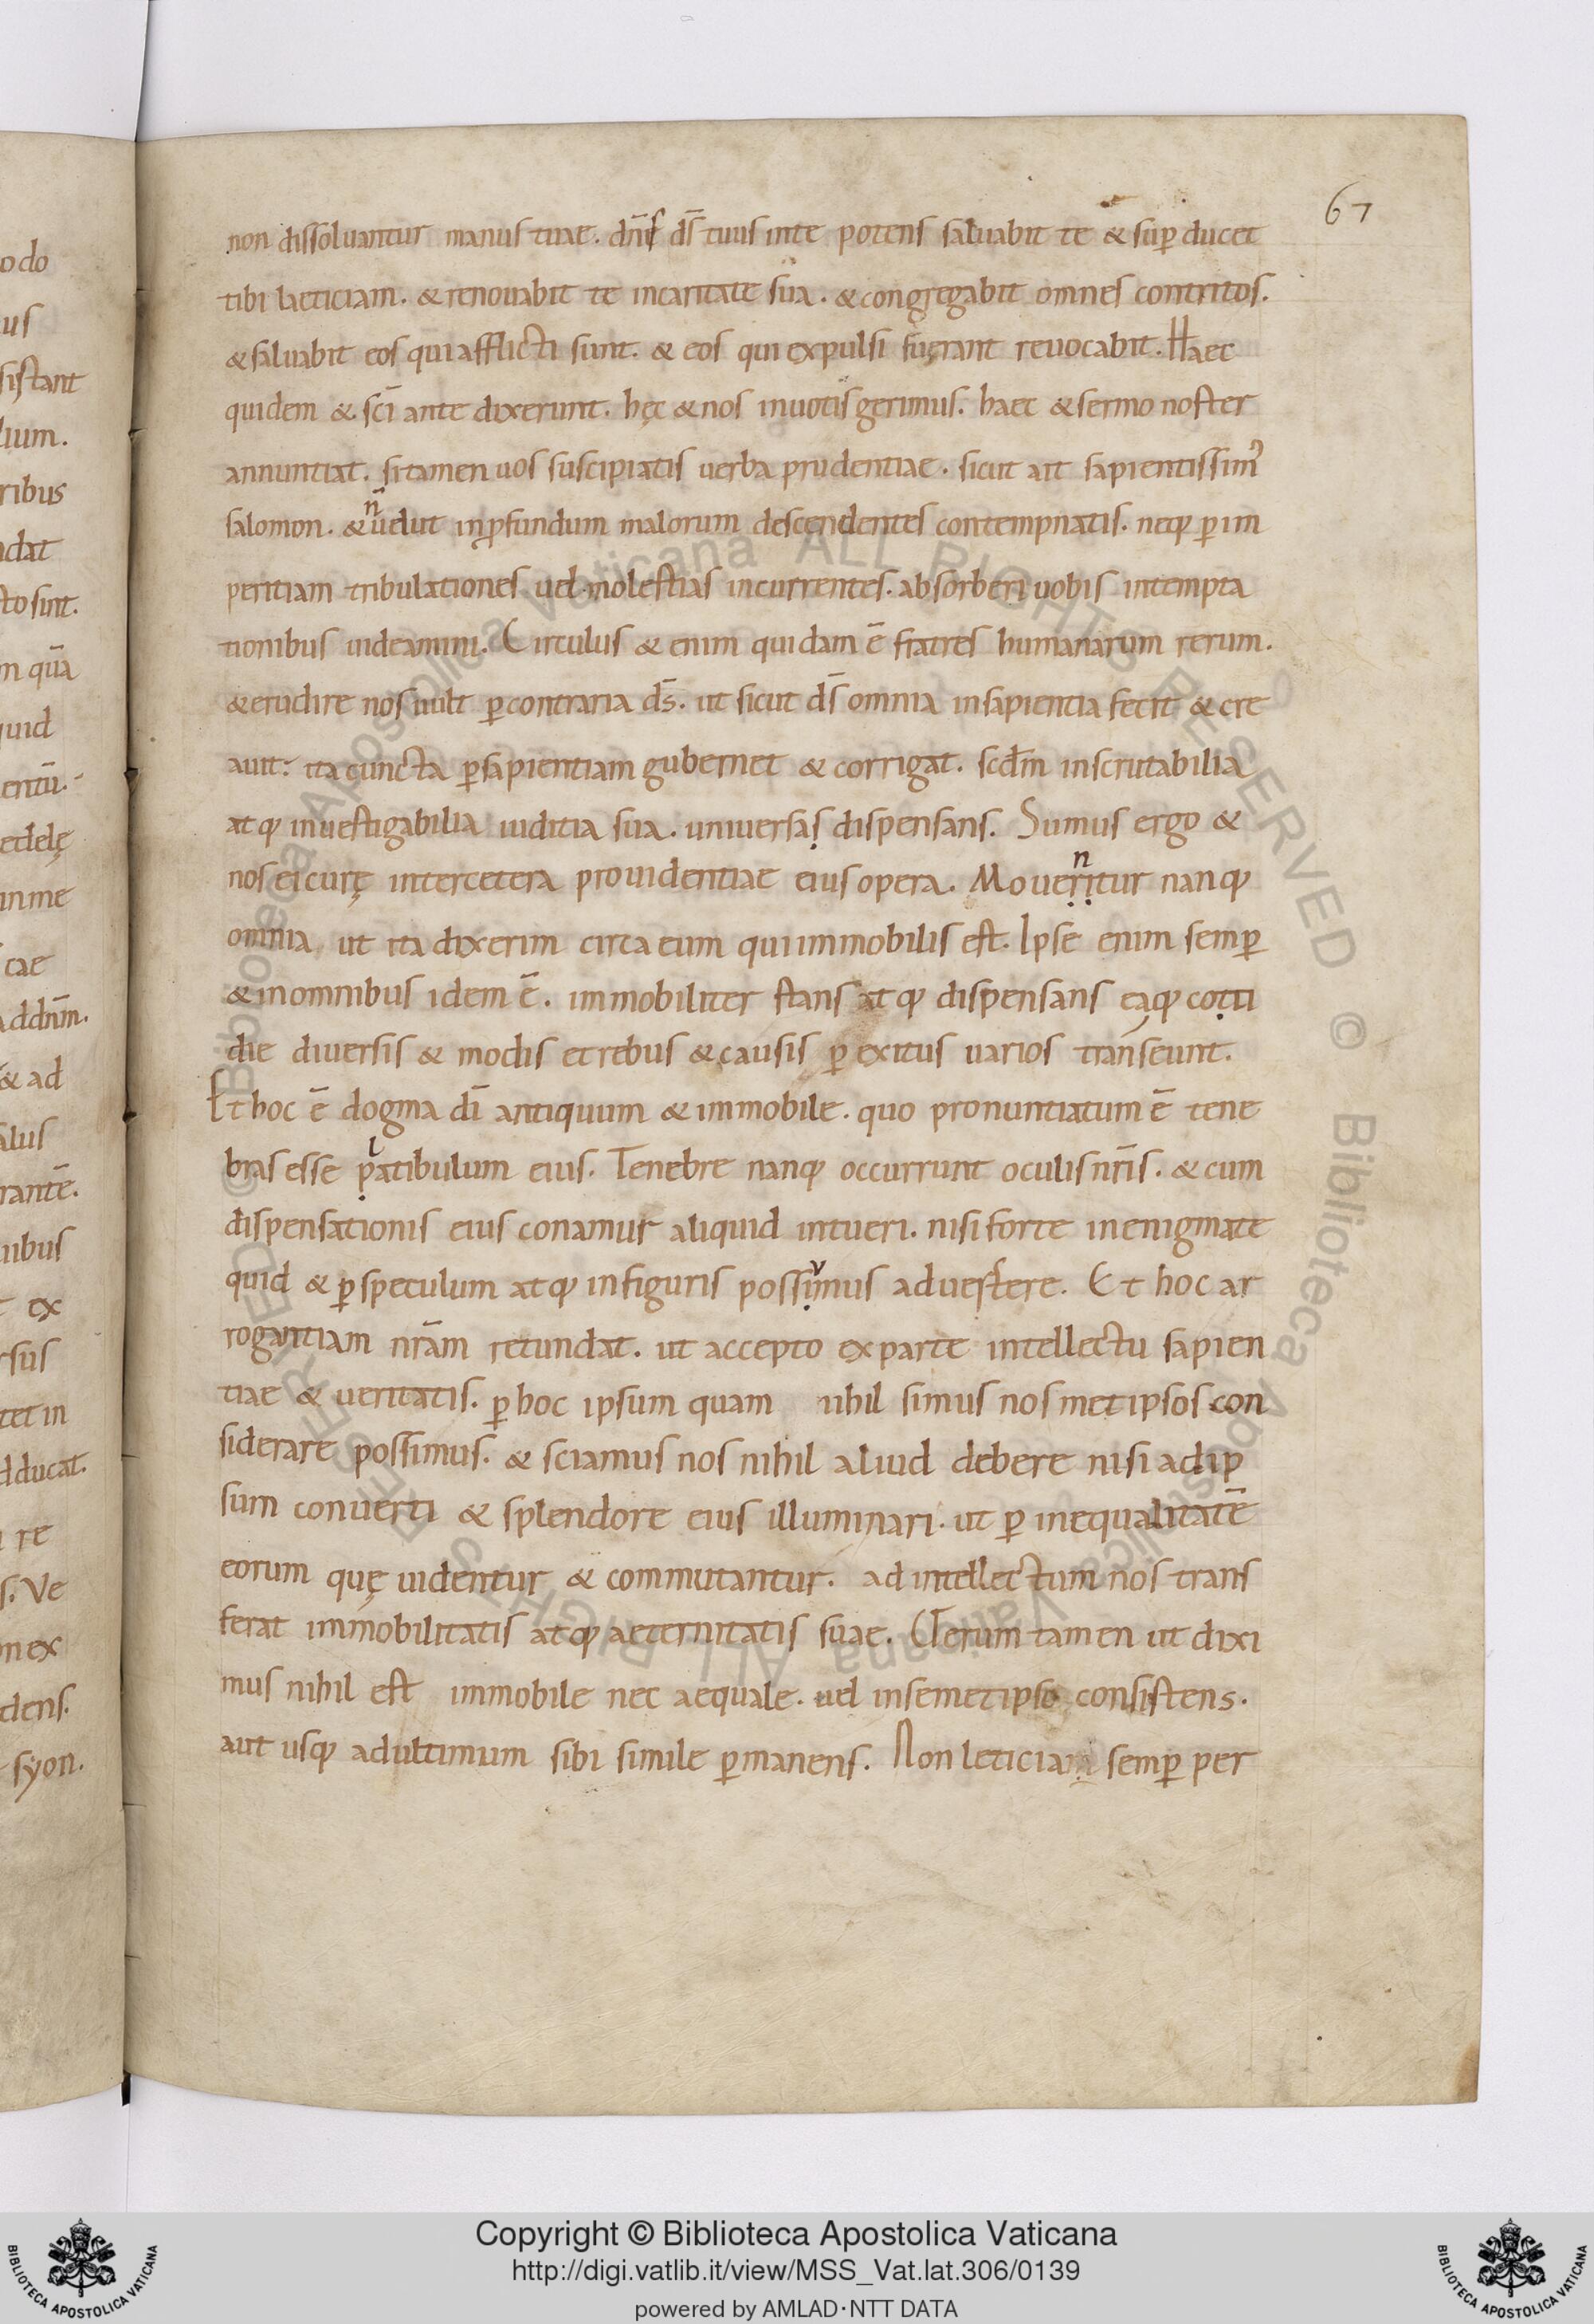 67
non dissoluantur manus tuae. dn̄s ds̄ tuus inte potens saluabit te & suꝑ ducet
tibi laeticiam. & renouabit te incaritate sua. & congregabit omnes contritos.
& saluabit eos qui afflicti sunt. & eos qui expulsi fuerant reuocabit. Haec
quidem & sc̄i ante dixerunt. hęc & nos inuotis gerimus. haec & sermo noster
annuntiat. si tamen uos suscipiatis uerba prudentiae. sicut ait sapientissim᾽
salomon. & n̄ uelut inꝓfundum malorum descendentes contempnatis. neq; ꝑ im
peritiam tribulationes uel molestias incurrentes. absorberi uobis intempta
tionibus uideamini. Circulus & enim quidam ē fratres humanarum rerum.
& erudire nos uult ꝑ contraria ds̄. ut sicut ds̄ omnia insapientia fecit & cre
auit: ita cuncta ꝑ sapientiam gubernet & corrigat. scd̄m inscrutabilia
atq; inuestigabilia iuditia sua. uniuersaṣ dispensans. Sumus ergo &
nos ei curę inter cetera prouidentiae eius opera. Moueṛịntur nanq;
omnia ut ita dixerim circa eum qui immobilis est. Ipse enim semꝑ
& inomnibus idem ē. immobiliter stans atq; dispensans eaq; cotti
die diuersis & modis et rebus & causis ꝑ exitus uarios transeunt.
Et hoc ē dogma dī antiquum & immobile. quo pronuntiatum ē tene
bras esse p̣latibulum eius. Tenebre nanq; occurrunt oculis nr̄is. & cum
dispensationis eius conamur aliquid intueri. nisi forte in enigmate
quid & ꝑ speculum atq; in figuris possịvmus aduertere. Et hoc ar
rogantiam nr̄am retundat. ut accepto ex parte intellectu sapien
tiae & ueritatis. ꝑ hoc ipsum quam nihil simus nosmet ipsos con
siderare possimus. & sciamus nos nihil aliud debere nisi ad ip
sum conuerti & splendore eius illuminari. ut ꝑ inequalitatē
eorum quę uidentur & commutantur. ad intellectum nos trans
ferat immobilitatis atq; aeternitatis suae. Uerum tamen ut dixi
mus nihil est immobile nec aequale. uel insemetipso consistens.
aut usq; ad ultimum sibi simile ꝑmanens. Non leticiam semꝑ per
Copyright © Biblioteca Apostolica Vaticana
http://digi.vatlib.it/view/MSS_Vat.lat.306/0139
powered by AMLAD·NTT DATA
BIBLIOTECA APOSTOLICA VATICANA
BIBLIOTECA APOSTOLICA VATICANA